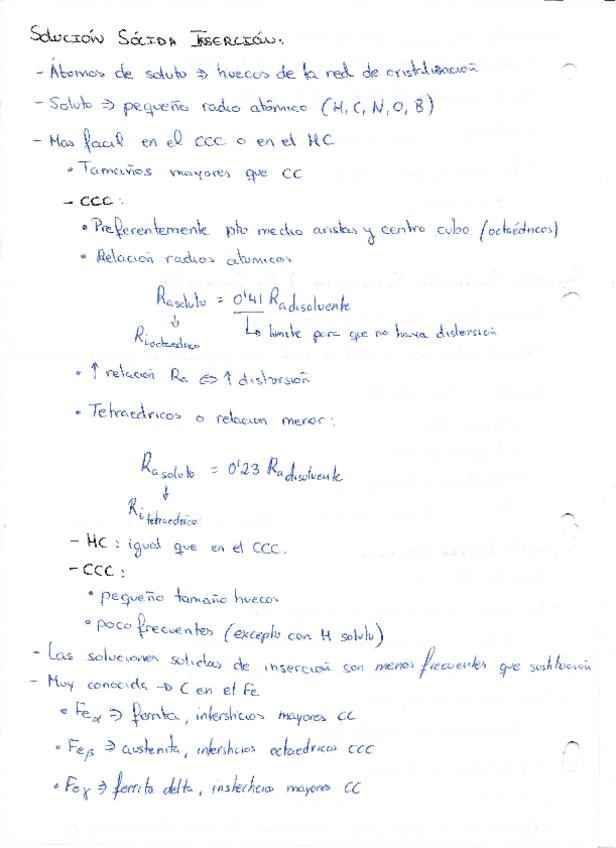 SOLUCIÓN SÓLIDA INSERCIÓN:
- Átomos de soluto ⇒ huecos de la red de cristalización
- Soluto ⇒ pequeño radio atómico (H, C, N, O, B)
- Mas facil en el CCC o en el HC
• Tamaños mayores que CC
- CCC:
• Preferentemente pto medio aristas y centro cubo (octaédricos)
• Relación radios atomicos
Ra soluto = 0'41 Ra disolvente
↓ ↳ limite para que no haya distorsión
Ri octaedrico
• ↑ relación Ra ⇔ ↑ distorsión
• Tetraedricos o relacion menor:
Ra soluto = 0'23 Ra disolvente
↓
Ri tetraedrico
- HC: igual que en el CCC.
- CCC:
• pequeño tamaño huecos
• poco frecuentes (excepto con H soluto)
- Las soluciones solidas de inserción son menos frecuentes que sustitución
- Muy conocida → C en el Fe.
• Feα ⇒ ferrita, intersticios mayores CC
• Feβ ⇒ austenita, intersticios octaedricos CCC
• Feγ ⇒ ferrita delta, insterticios mayores CC